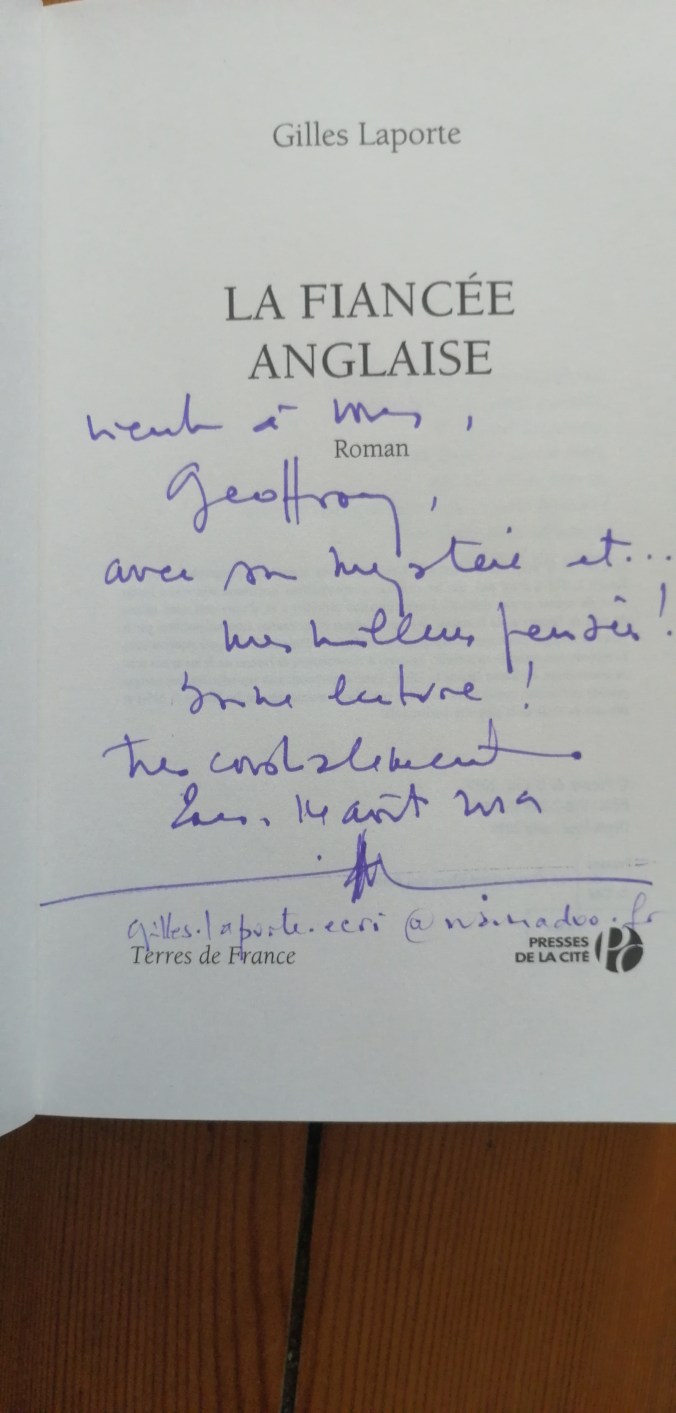 Gilles Laporte
LA FIANCÉE
ANGLAISE
vient à vous,
Roman
Geoffroy,
avec son mystère et...
mes meilleures pensées !
bonne lecture !
très cordialement
14 août 2019
gilles.laporte.ecri@wanadoo.fr
Terres de France
PRESSES
DE LA CITÉ